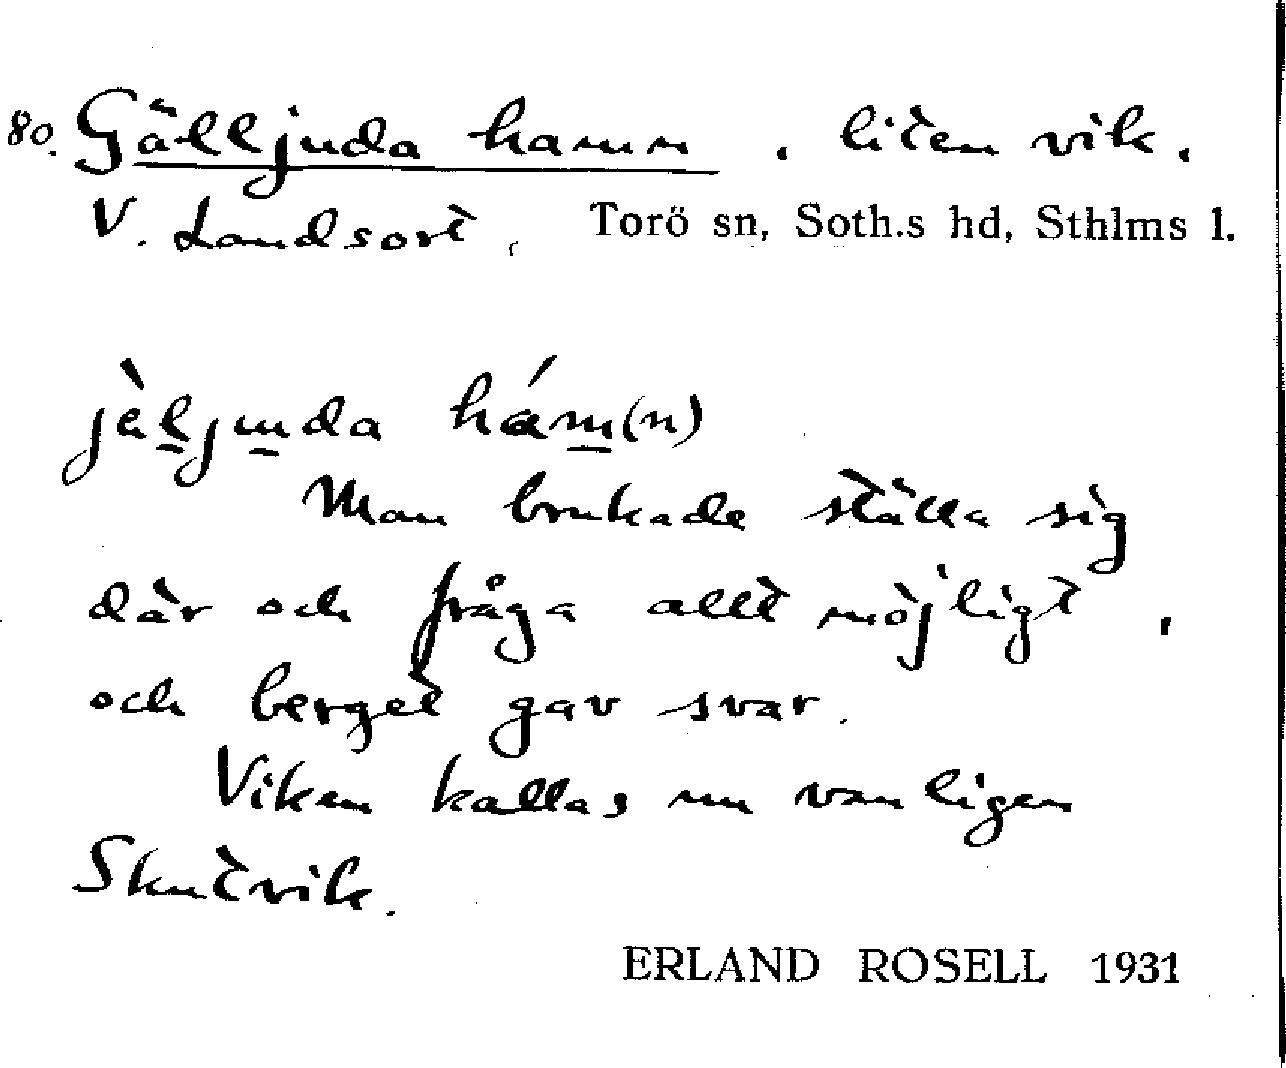 80. Gälljuda hamn, liten vik.
V. Landsort, Torö sn, Soth.s hd, Sthlms l.
jèljuda hám(n)
Man brukade ställa sig
där och fråga allt möjligt,
och berget gav svar.
Viken kallas nu vanligen
Skutvik.
ERLAND ROSELL 1931